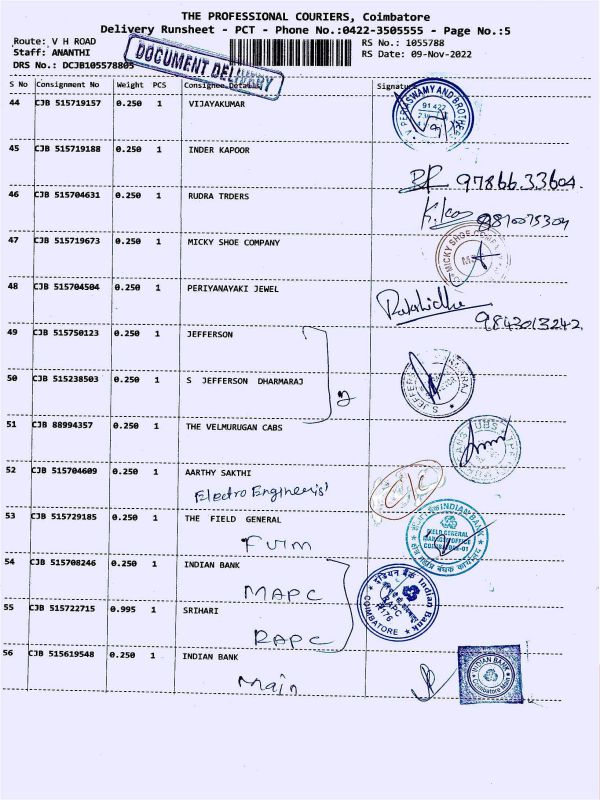 THE PROFESSIONAL COURIERS, Coimbatore
Delivery Runsheet - PCT - Phone No.:0422-3505555 - Page No.:5
Route: V H ROAD
RS No.: 1055788
Staff: ANANTHI
RS Date: 09-Nov-2022
DRS No.: DCJB105578805
DOCUMENT DELIVERY
S No Consignment No Weight PCS Consignee Details Signature
44 CJB 515719157 0.250 1 VIJAYAKUMAR
V. PERIASWAMY AND BROTHERS
45 CJB 515719188 0.250 1 INDER KAPOOR
97866 33604
46 CJB 515704631 0.250 1 RUDRA TRDERS
47 CJB 515719673 0.250 1 MICKY SHOE COMPANY
MICKY SHOE COMPANY
48 CJB 515704504 0.250 1 PERIYANAYAKI JEWEL
9843013242
49 CJB 515750123 0.250 1 JEFFERSON
50 CJB 515238503 0.250 1 S JEFFERSON DHARMARAJ
2
51 CJB 88994357 0.250 1 THE VELMURUGAN CABS
52 CJB 515704609 0.250 1 AARTHY SAKTHI
Electro Engineers'
C/C
53 CJB 515729185 0.250 1 THE FIELD GENERAL
INDIAN BANK
FIELD GENERAL
MANAGER OFFICE
COIMBATORE-01
Fvrm
54 CJB 515708246 0.250 1 INDIAN BANK
इंडियन बैंक Indian Bank
MAPC
RAPC
COIMBATORE
55 CJB 515722715 0.995 1 SRIHARI
RAPC
56 CJB 515619548 0.250 1 INDIAN BANK
INDIAN BANK
Coimbatore Main
Main